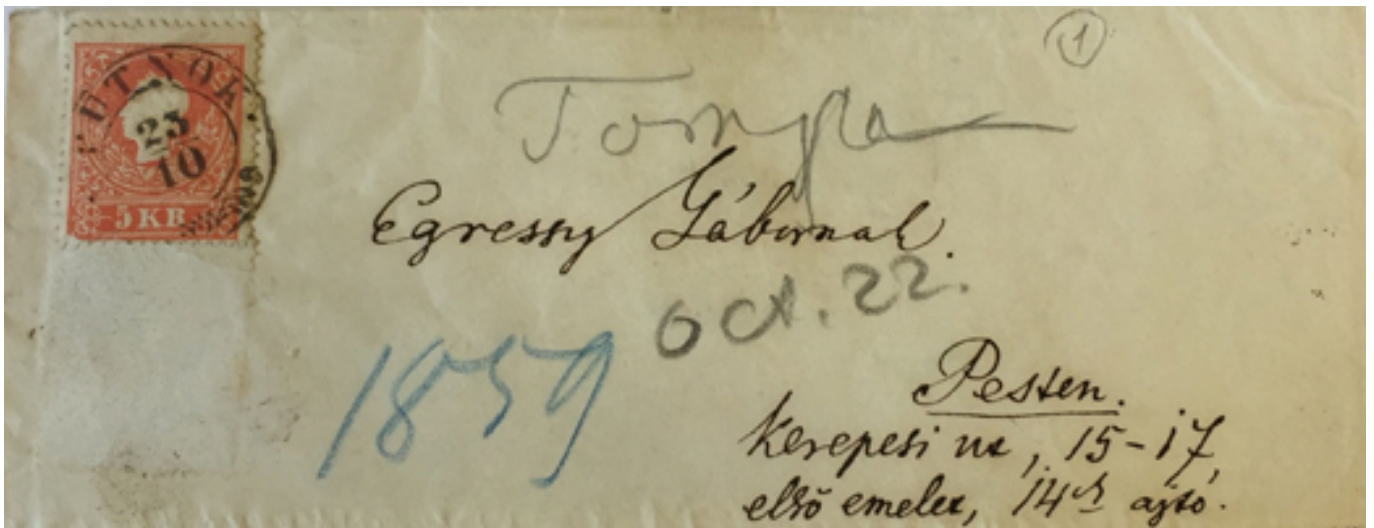 ①
PUTNOK.
23
10
5 KR
Tompa
Egressy Gábornak.
oct. 22.
1859
Pesten.
Kerepesi ut, 15-17,
első emelet, 14ik ajtó.